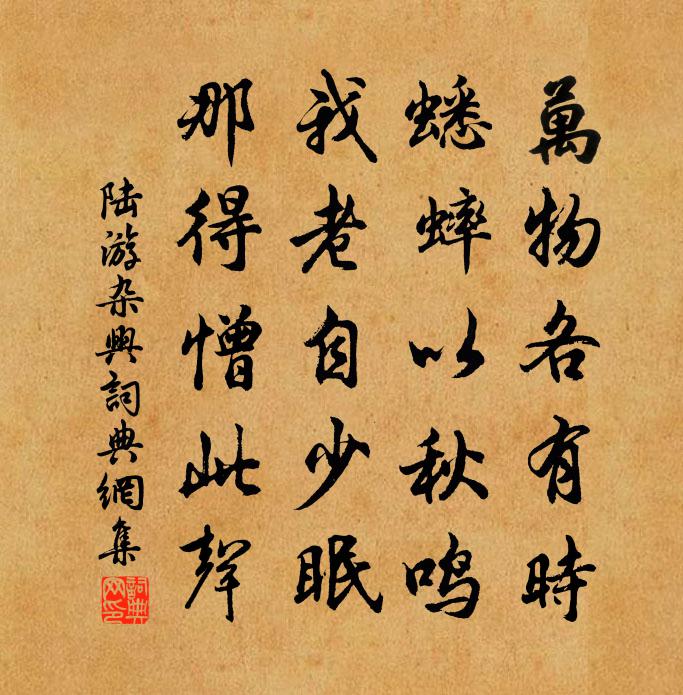 萬物各有時
蟋蟀以秋鸣
我老自少眠
那得憎此聲
陆游杂興詞典網集
詞典网印